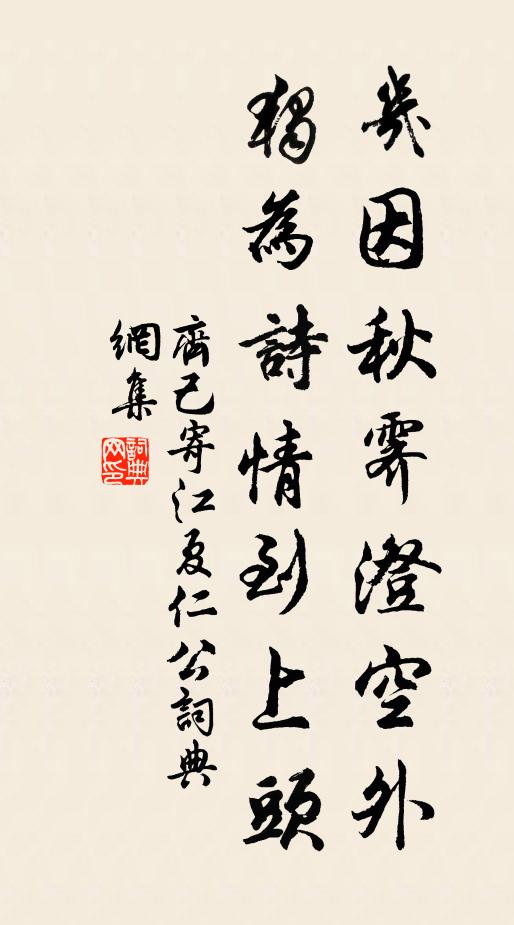 幾因秋霽澄空外
獨為詩情到上頭
齊己寄江夏仁公詞典
網集
詞典
网印